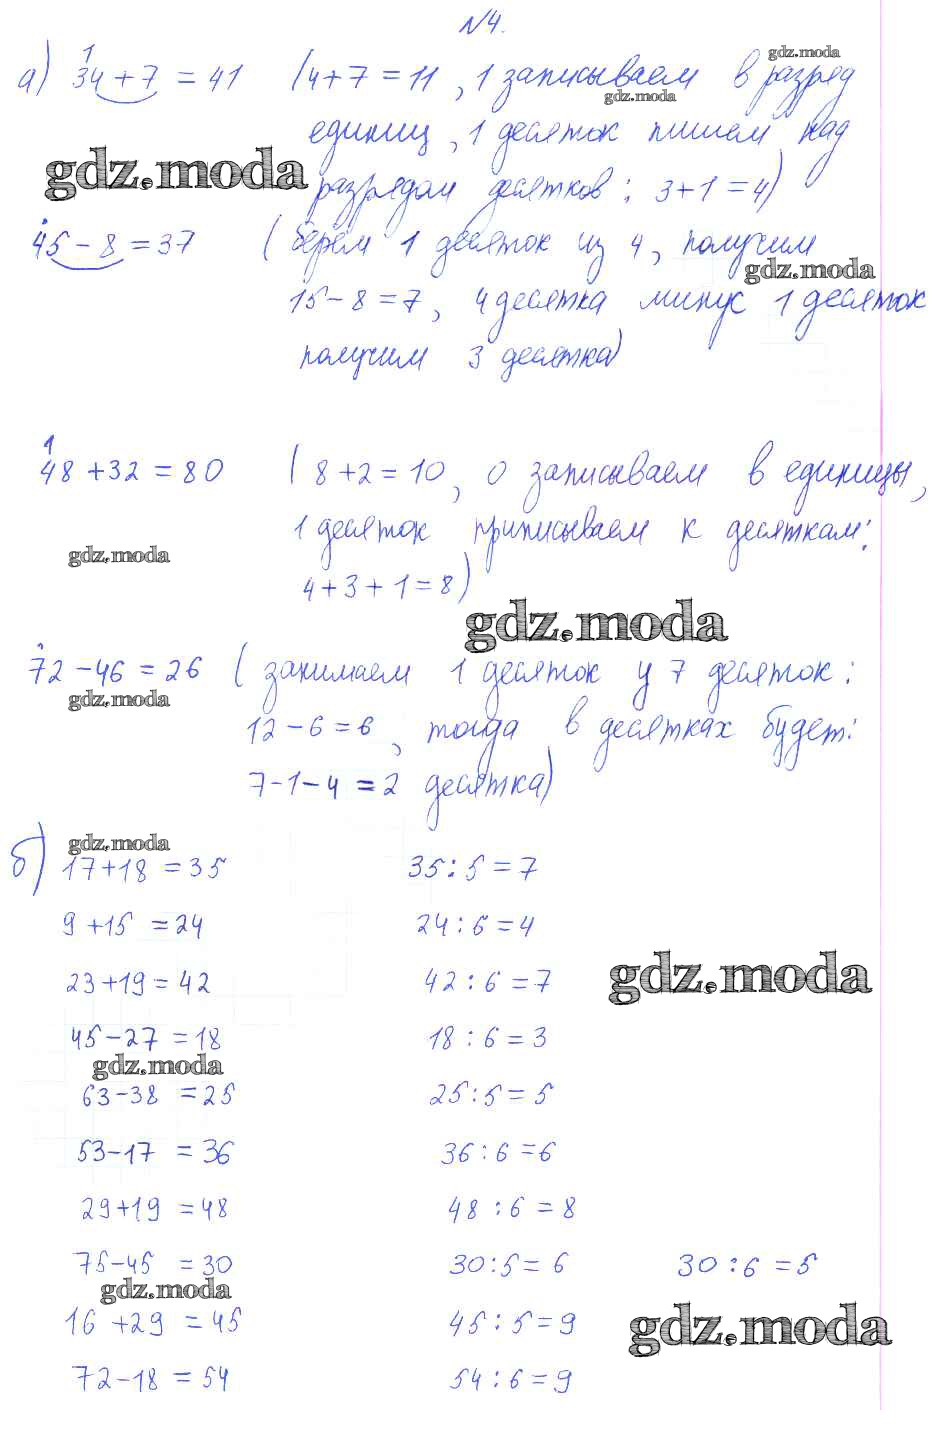 №4.
gdz.moda
а) 34 + 7 = 41 (4+7 = 11, 1 записываем в разряд
1
gdz.moda
единиц, 1 десяток пишем над
gdz.moda
разрядом десятков: 3+1=4)
45 - 8 = 37 (берём 1 десяток из 4, получим
gdz.moda
15 - 8 = 7, 4 десятка минус 1 десяток
получим 3 десятка)
1
48 + 32 = 80 (8 + 2 = 10, 0 записываем в единицы,
1 десяток приписываем к десяткам:
gdz.moda
4 + 3 + 1 = 8)
gdz.moda
72 - 46 = 26 (занимаем 1 десяток у 7 десяток:
gdz.moda
12 - 6 = 6, тогда в десятках будет:
7 - 1 - 4 = 2 десятка)
gdz.moda
б) 17+18 = 35 35 : 5 = 7
9 + 15 = 24 24 : 6 = 4
23+19 = 42 42 : 6 = 7
gdz.moda
45-27 = 18 18 : 6 = 3
gdz.moda
63-38 = 25 25 : 5 = 5
53-17 = 36 36 : 6 = 6
29+19 = 48 48 : 6 = 8
75-45 = 30 30 : 5 = 6 30 : 6 = 5
gdz.moda
16 + 29 = 45 45 : 5 = 9
gdz.moda
72-18 = 54 54 : 6 = 9